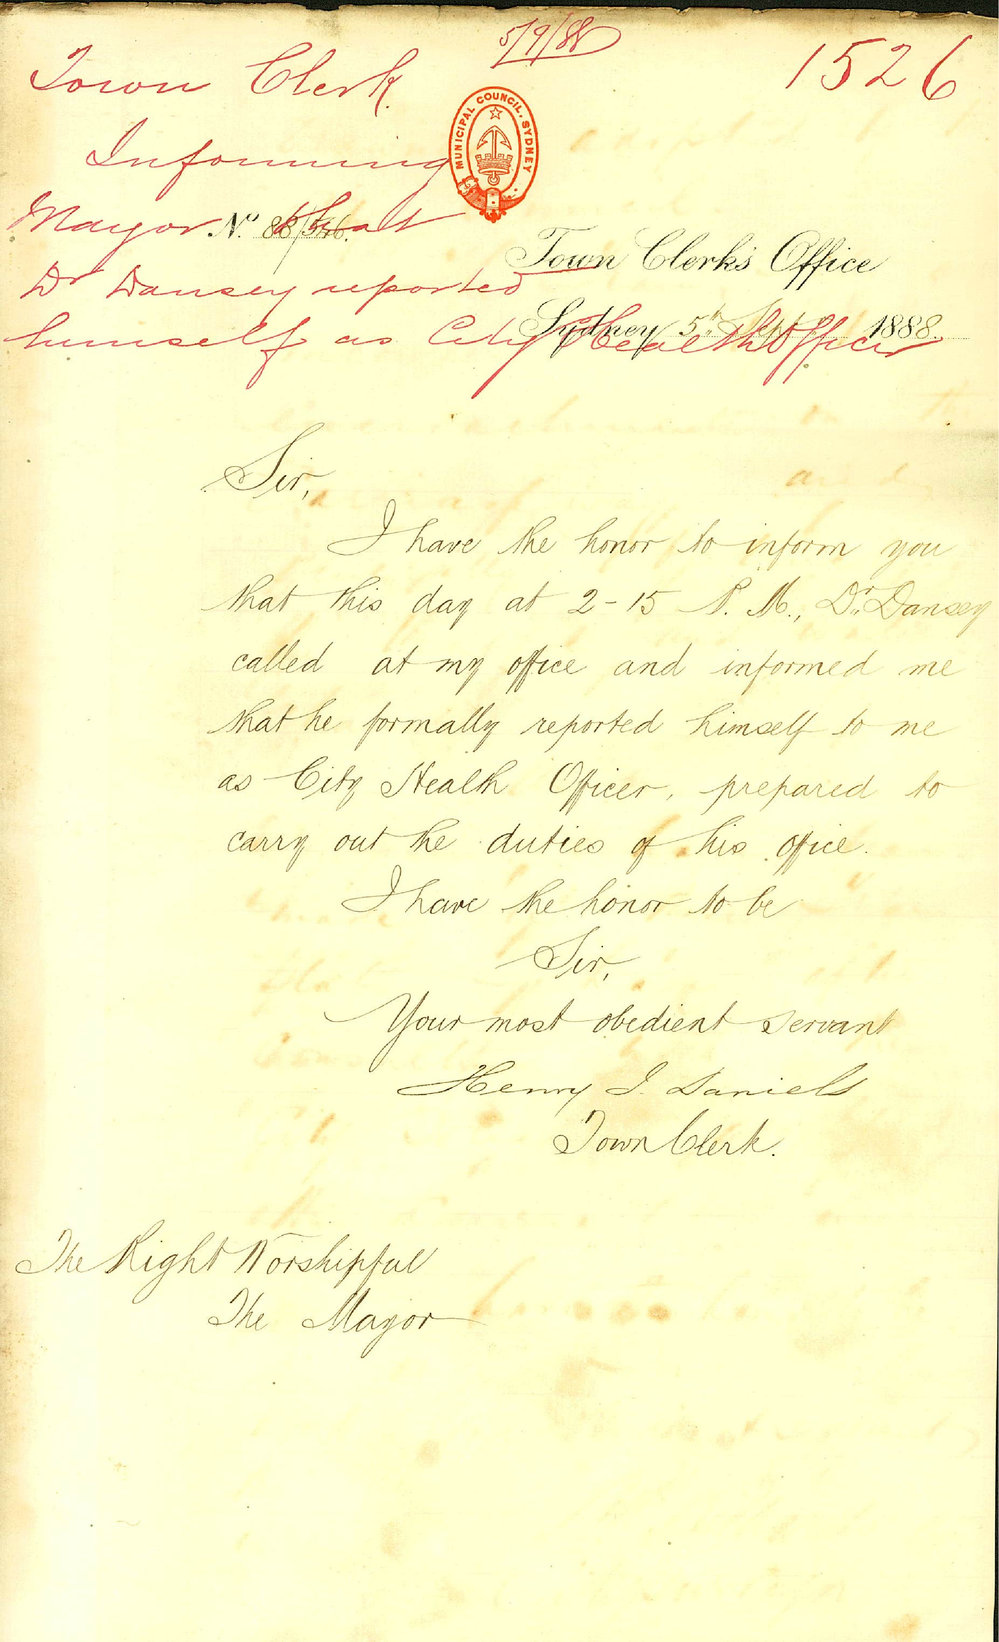 5/9/88
1526
Town Clerk
Informing
Mayor that
Dr Dansey reported
himself as City Health Officer
MUNICIPAL COUNCIL. SYDNEY
No. 88/546.
Town Clerk's Office
Sydney 5th Sept 1888.
Sir,
I have the honor to inform you
that this day at 2-15 P. M., Dr. Dansey
called at my office and informed me
that he formally reported himself to me
as City Health Officer, prepared to
carry out the duties of his office.
I have the honor to be
Sir,
Your most obedient servant
Henry J. Daniels
Town Clerk.
The Right Worshipful
The Mayor